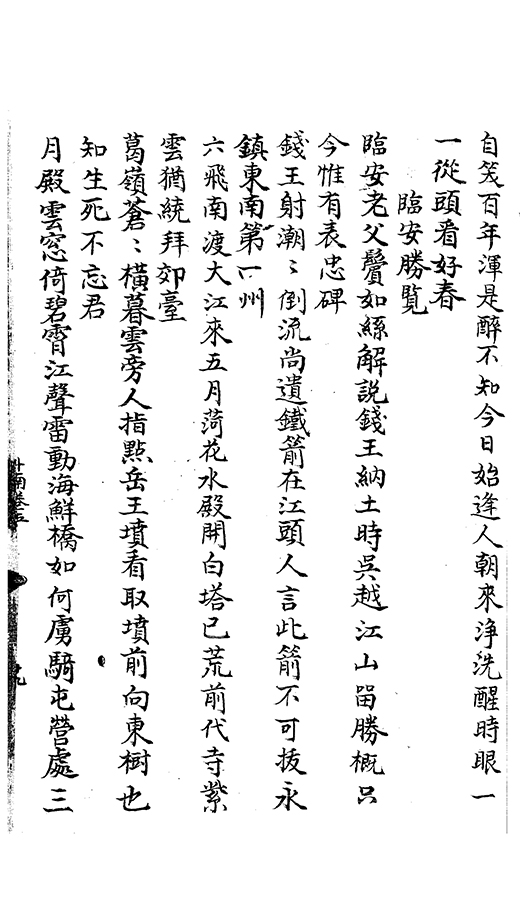 自笑百年渾是醉不知今日始逢人朝來淨洗醒時眼一
一從頭看好春
臨安勝覧
臨安老父鬢如絲解説錢王納土時吳越江山留勝概只
今惟有表忠碑
錢王射潮〻倒流尚遺鐵箭在江頭人言此箭不可拔永
鎮東南第一州
六飛南渡大江來五月菏花水殿開白塔已荒前代寺紫
雲猶統拜郊臺
葛嶺蒼〻橫暮雲旁人指點岳王墳看取墳前向東樹也
知生死不忘君
月殿雲窓倚碧霄江聲雷動海鮮橋如何虜騎屯營處三